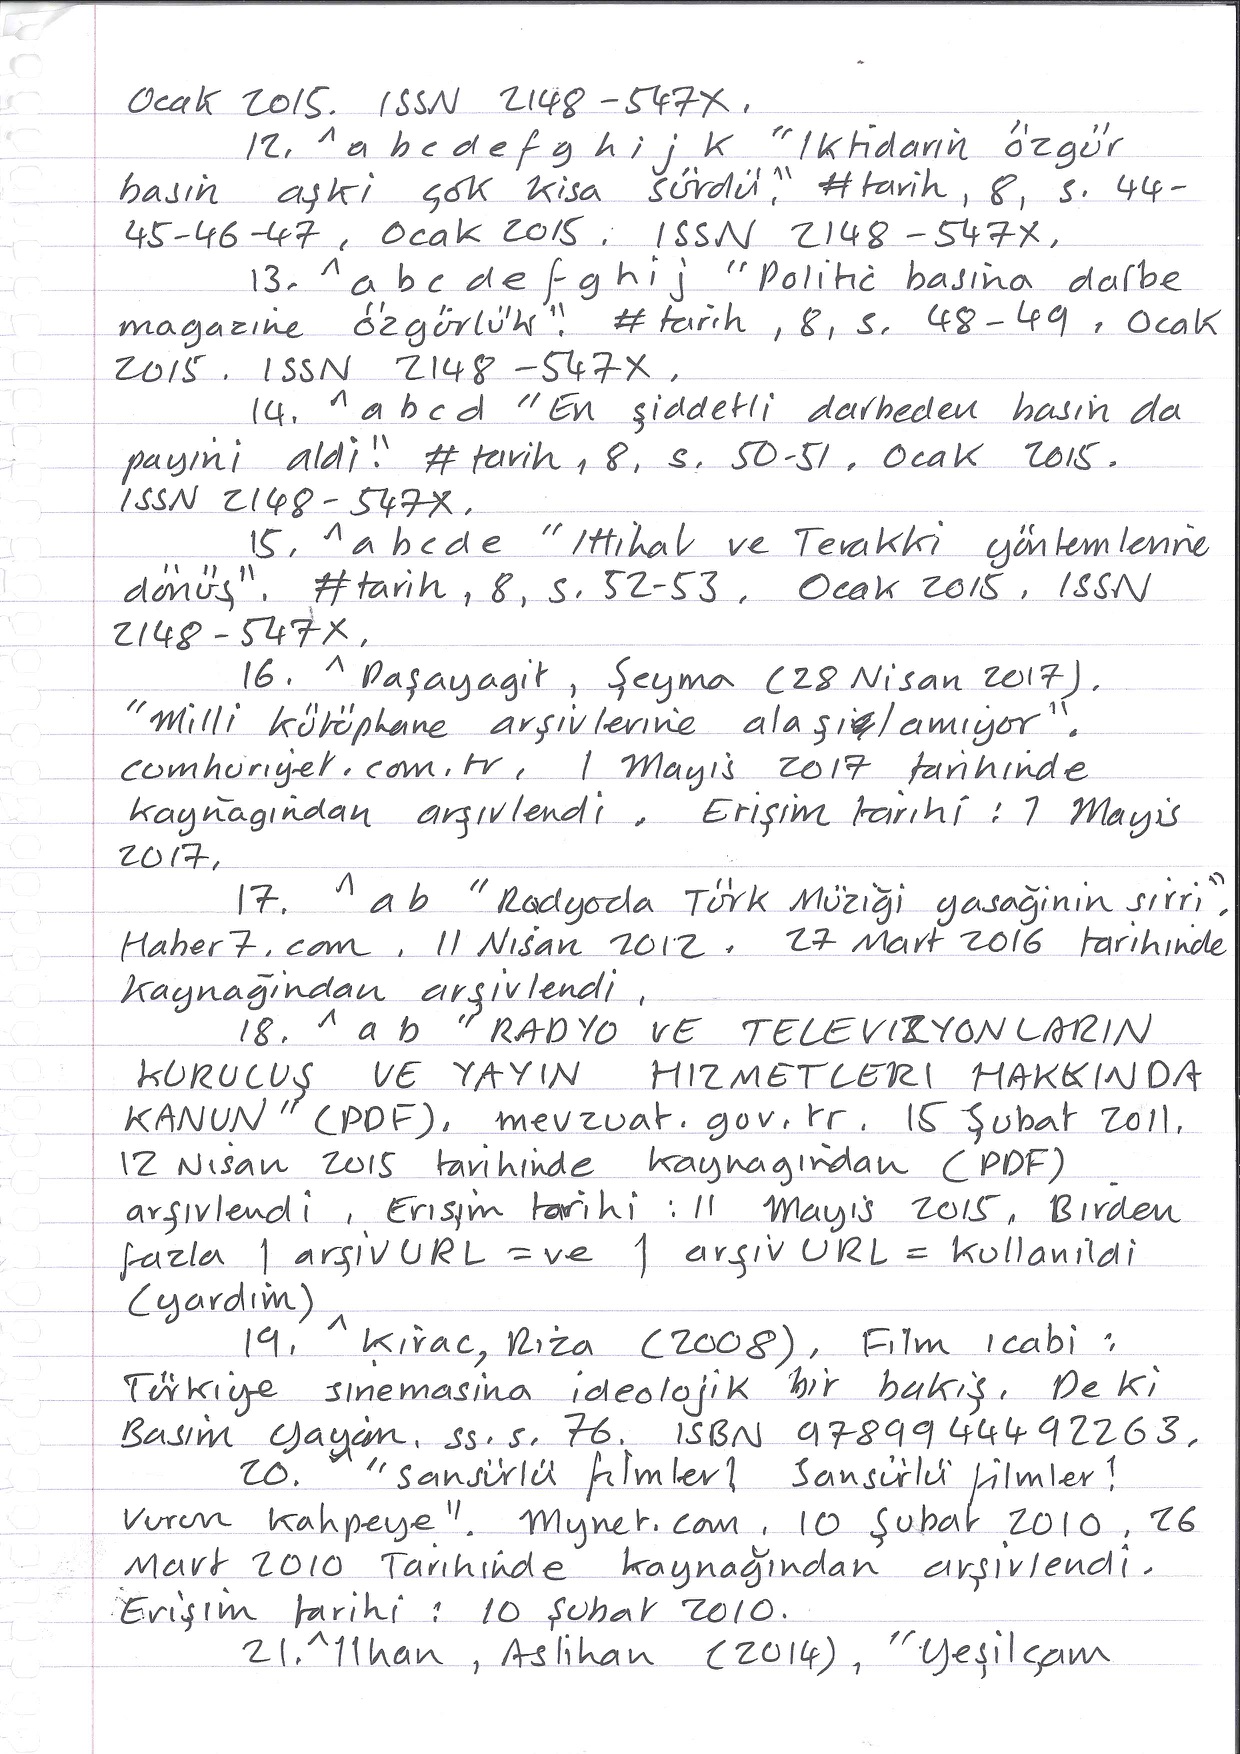 Ocak 2015. ISSN 2148-547X.
12. ^ a b c d e f g h i j k "Iktidarin özgür
basin aşki çok kisa sürdü". #tarih, 8, s. 44-
45-46-47, Ocak 2015. ISSN 2148-547X.
13. ^ a b c d e f g h i j "Politic basina darbe
magazine özgürlük". #tarih, 8, s. 48-49. Ocak
2015. ISSN 2148-547X.
14. ^ a b c d "En şiddetli darbeden basin da
payini aldi". #tarih, 8, s. 50-51. Ocak 2015.
ISSN 2148-547X.
15. ^ a b c d e "Ittihat ve Terakki yöntemlerine
dönüş". #tarih, 8, s. 52-53. Ocak 2015. ISSN
2148-547X.
16. ^ Paşayagit, Şeyma (28 Nisan 2017).
"Milli kütüphane arşivlerine alaşilamiyor".
cumhuriyet.com.tr. 1 Mayis 2017 tarihinde
kaynagindan arşivlendi. Erişim tarihi: 1 Mayis
2017.
17. ^ a b "Radyoda Türk Müziği yasağinin sirri".
Haber7.com. 11 Nisan 2012. 27 Mart 2016 tarihinde
kaynağindan arşivlendi.
18. ^ a b "RADYO VE TELEVIZYONLARIN
KURULUŞ VE YAYIN HIZMETLERI HAKKINDA
KANUN" (PDF). mevzuat.gov.tr. 15 Şubat 2011.
12 Nisan 2015 tarihinde kaynagindan (PDF)
arşivlendi. Erisim tarihi: 11 Mayis 2015. Birden
fazla | arşivURL = ve | arşivURL = kullanildi
(yardim)
19. ^ Kirac, Riza (2008). Film icabi:
Türkiye sinemasina ideolojik bir bakiş. De ki
Basim Yayin. ss. s. 76. ISBN 9789944492263.
20. ^ "Sansürlü filmler! Sansürlü filmler!
Vurun kahpeye". Mynet.com. 10 Şubat 2010. 26
Mart 2010 Tarihinde kaynağindan arşivlendi.
Erişim tarihi: 10 Şubat 2010.
21. ^ Ilhan, Aslihan (2014), "Yeşilçam